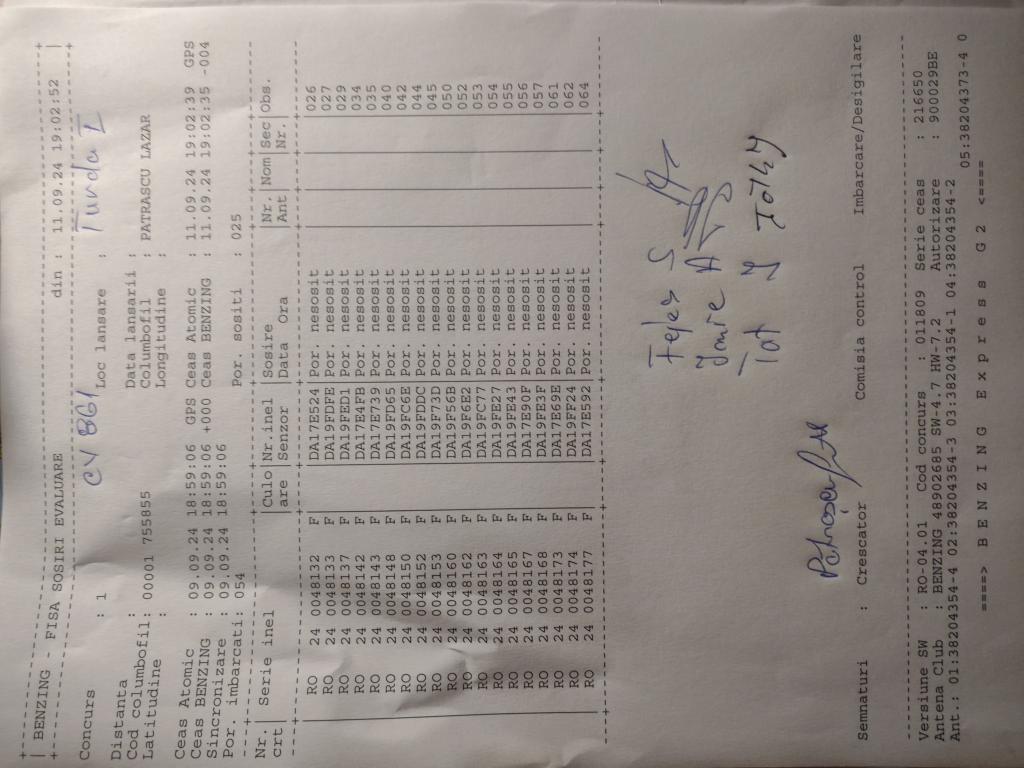 | BENZING - FISA SOSIRI EVALUARE din : 11.09.24 19:02:52 |
Concurs : 1 CV 861 Loc lansare : Turda I
Distanta : Data lansarii :
Cod columbofil: 00001 755855 Columbofil : PATRASCU LAZAR
Latitudine : Longitudine :
Ceas Atomic : 09.09.24 18:59:06 GPS Ceas Atomic : 11.09.24 19:02:39 GPS
Ceas BENZING : 09.09.24 18:59:06 +000 Ceas BENZING : 11.09.24 19:02:35 -004
Sincronizare : 09.09.24 18:59:06
Por. imbarcati: 054 Por. sositi : 025
Nr.| Serie inel |Culo|Nr.inel |Sosire |Nr. |Nom|Sec|Obs.
crt| |are |Senzor |Data Ora |Ant| |Nr.|
RO 24 0048132 F | |DA17E524|Por. nesosit | | | |026
RO 24 0048133 F | |DA19FDFE|Por. nesosit | | | |027
RO 24 0048137 F | |DA19FED1|Por. nesosit | | | |029
RO 24 0048142 F | |DA17E4FB|Por. nesosit | | | |034
RO 24 0048143 F | |DA17E739|Por. nesosit | | | |035
RO 24 0048148 F | |DA19FD65|Por. nesosit | | | |040
RO 24 0048150 F | |DA19FC6E|Por. nesosit | | | |042
RO 24 0048152 F | |DA19FDDC|Por. nesosit | | | |044
RO 24 0048153 F | |DA19F73D|Por. nesosit | | | |045
RO 24 0048160 F | |DA19F56B|Por. nesosit | | | |050
RO 24 0048162 F | |DA19F6E2|Por. nesosit | | | |052
RO 24 0048163 F | |DA19FC77|Por. nesosit | | | |053
RO 24 0048164 F | |DA19FE27|Por. nesosit | | | |054
RO 24 0048165 F | |DA19FE43|Por. nesosit | | | |055
RO 24 0048167 F | |DA17E90F|Por. nesosit | | | |056
RO 24 0048168 F | |DA19FE3F|Por. nesosit | | | |057
RO 24 0048173 F | |DA17E69E|Por. nesosit | | | |061
RO 24 0048174 F | |DA19FF24|Por. nesosit | | | |062
RO 24 0048177 F | |DA17E592|Por. nesosit | | | |064
S
A
Tot J
Semnaturi : Crescator Comisia control Imbarcare/Desigilare
Versiune SW : RO-04.01 Cod concurs : 011809 Serie ceas : 216650
Antena Club : BENZING 48902685 SW-4.7 HW-7.2 Autorizare : 900029BE
Ant.: 01:38204354-4 02:38204354-3 03:38204354-1 04:38204354-2 05:38204373-4 0
====> B E N Z I N G E x p r e s s G 2 <====